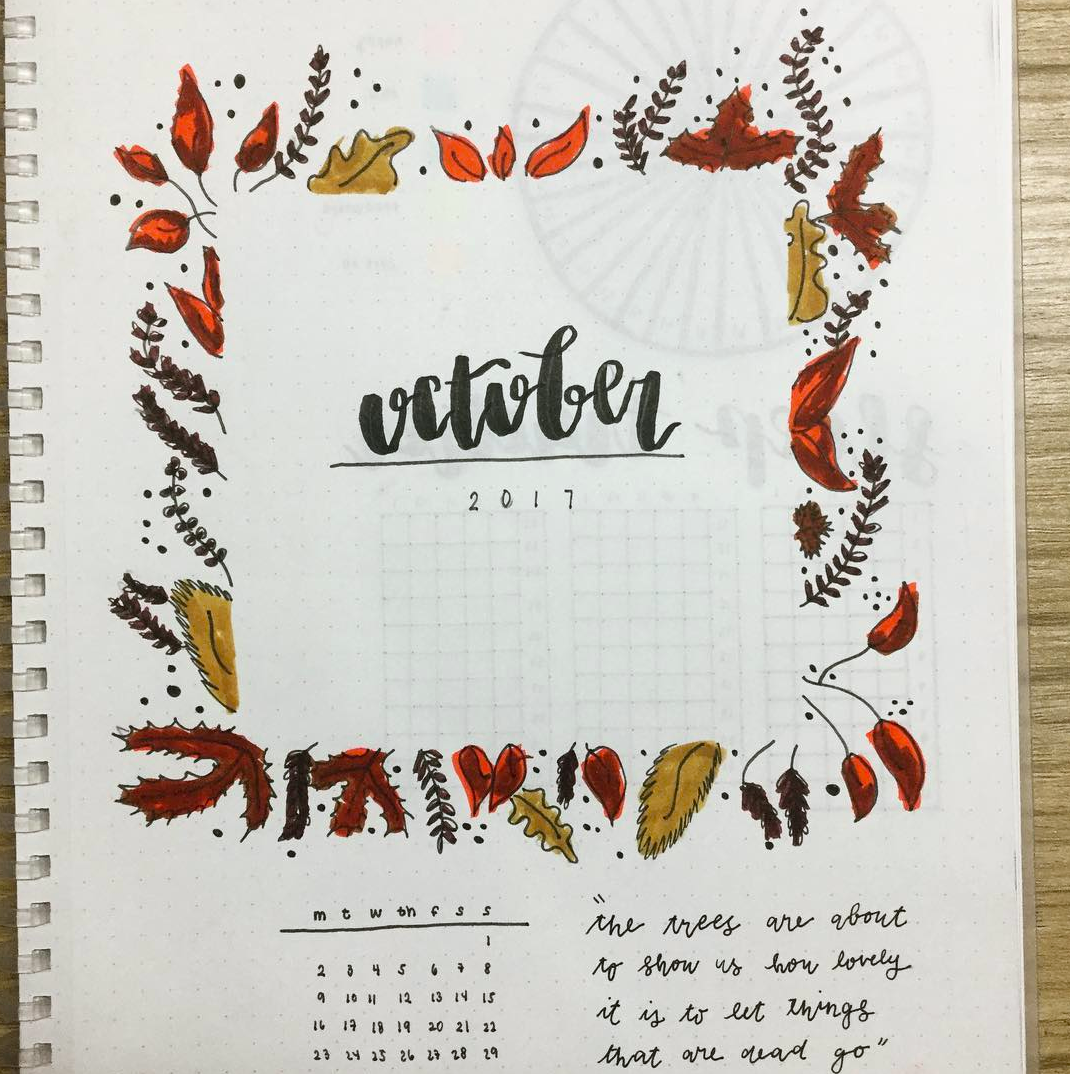 october
2017
m t w th f s s
1
2 3 4 5 6 7 8
9 10 11 12 13 14 15
16 17 18 19 20 21 22
23 24 25 26 27 28 29
"the trees are about
to show us how lovely
it is to let things
that are dead go"